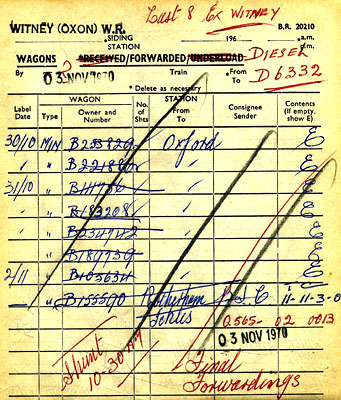 Last 8 Ex WITNEY
WITNEY (OXON) W.R.
B.R. 20210
SIDING
STATION
196
a.m.
p.m.
WAGONS *RECEIVED/FORWARDED/UNDERLOAD DIESEL
By 03 NOV 1970 Train *From To D6332
* Delete as necessary
Label Date Type WAGON Owner and Number No. of Shts STATION From To Consignee Sender Contents (If empty, show E)
30/10 MIN Oxford E
" " E
31/10 " " E
" " B183208 " E
" " B234742 " E
" " B189739 " E
2/11 " B105634 " E
B155590 Rotherham 11-11-3-0
Q565 02 0013
03 NOV 1970
Shunt
10-30 AM
Final
Forwardings